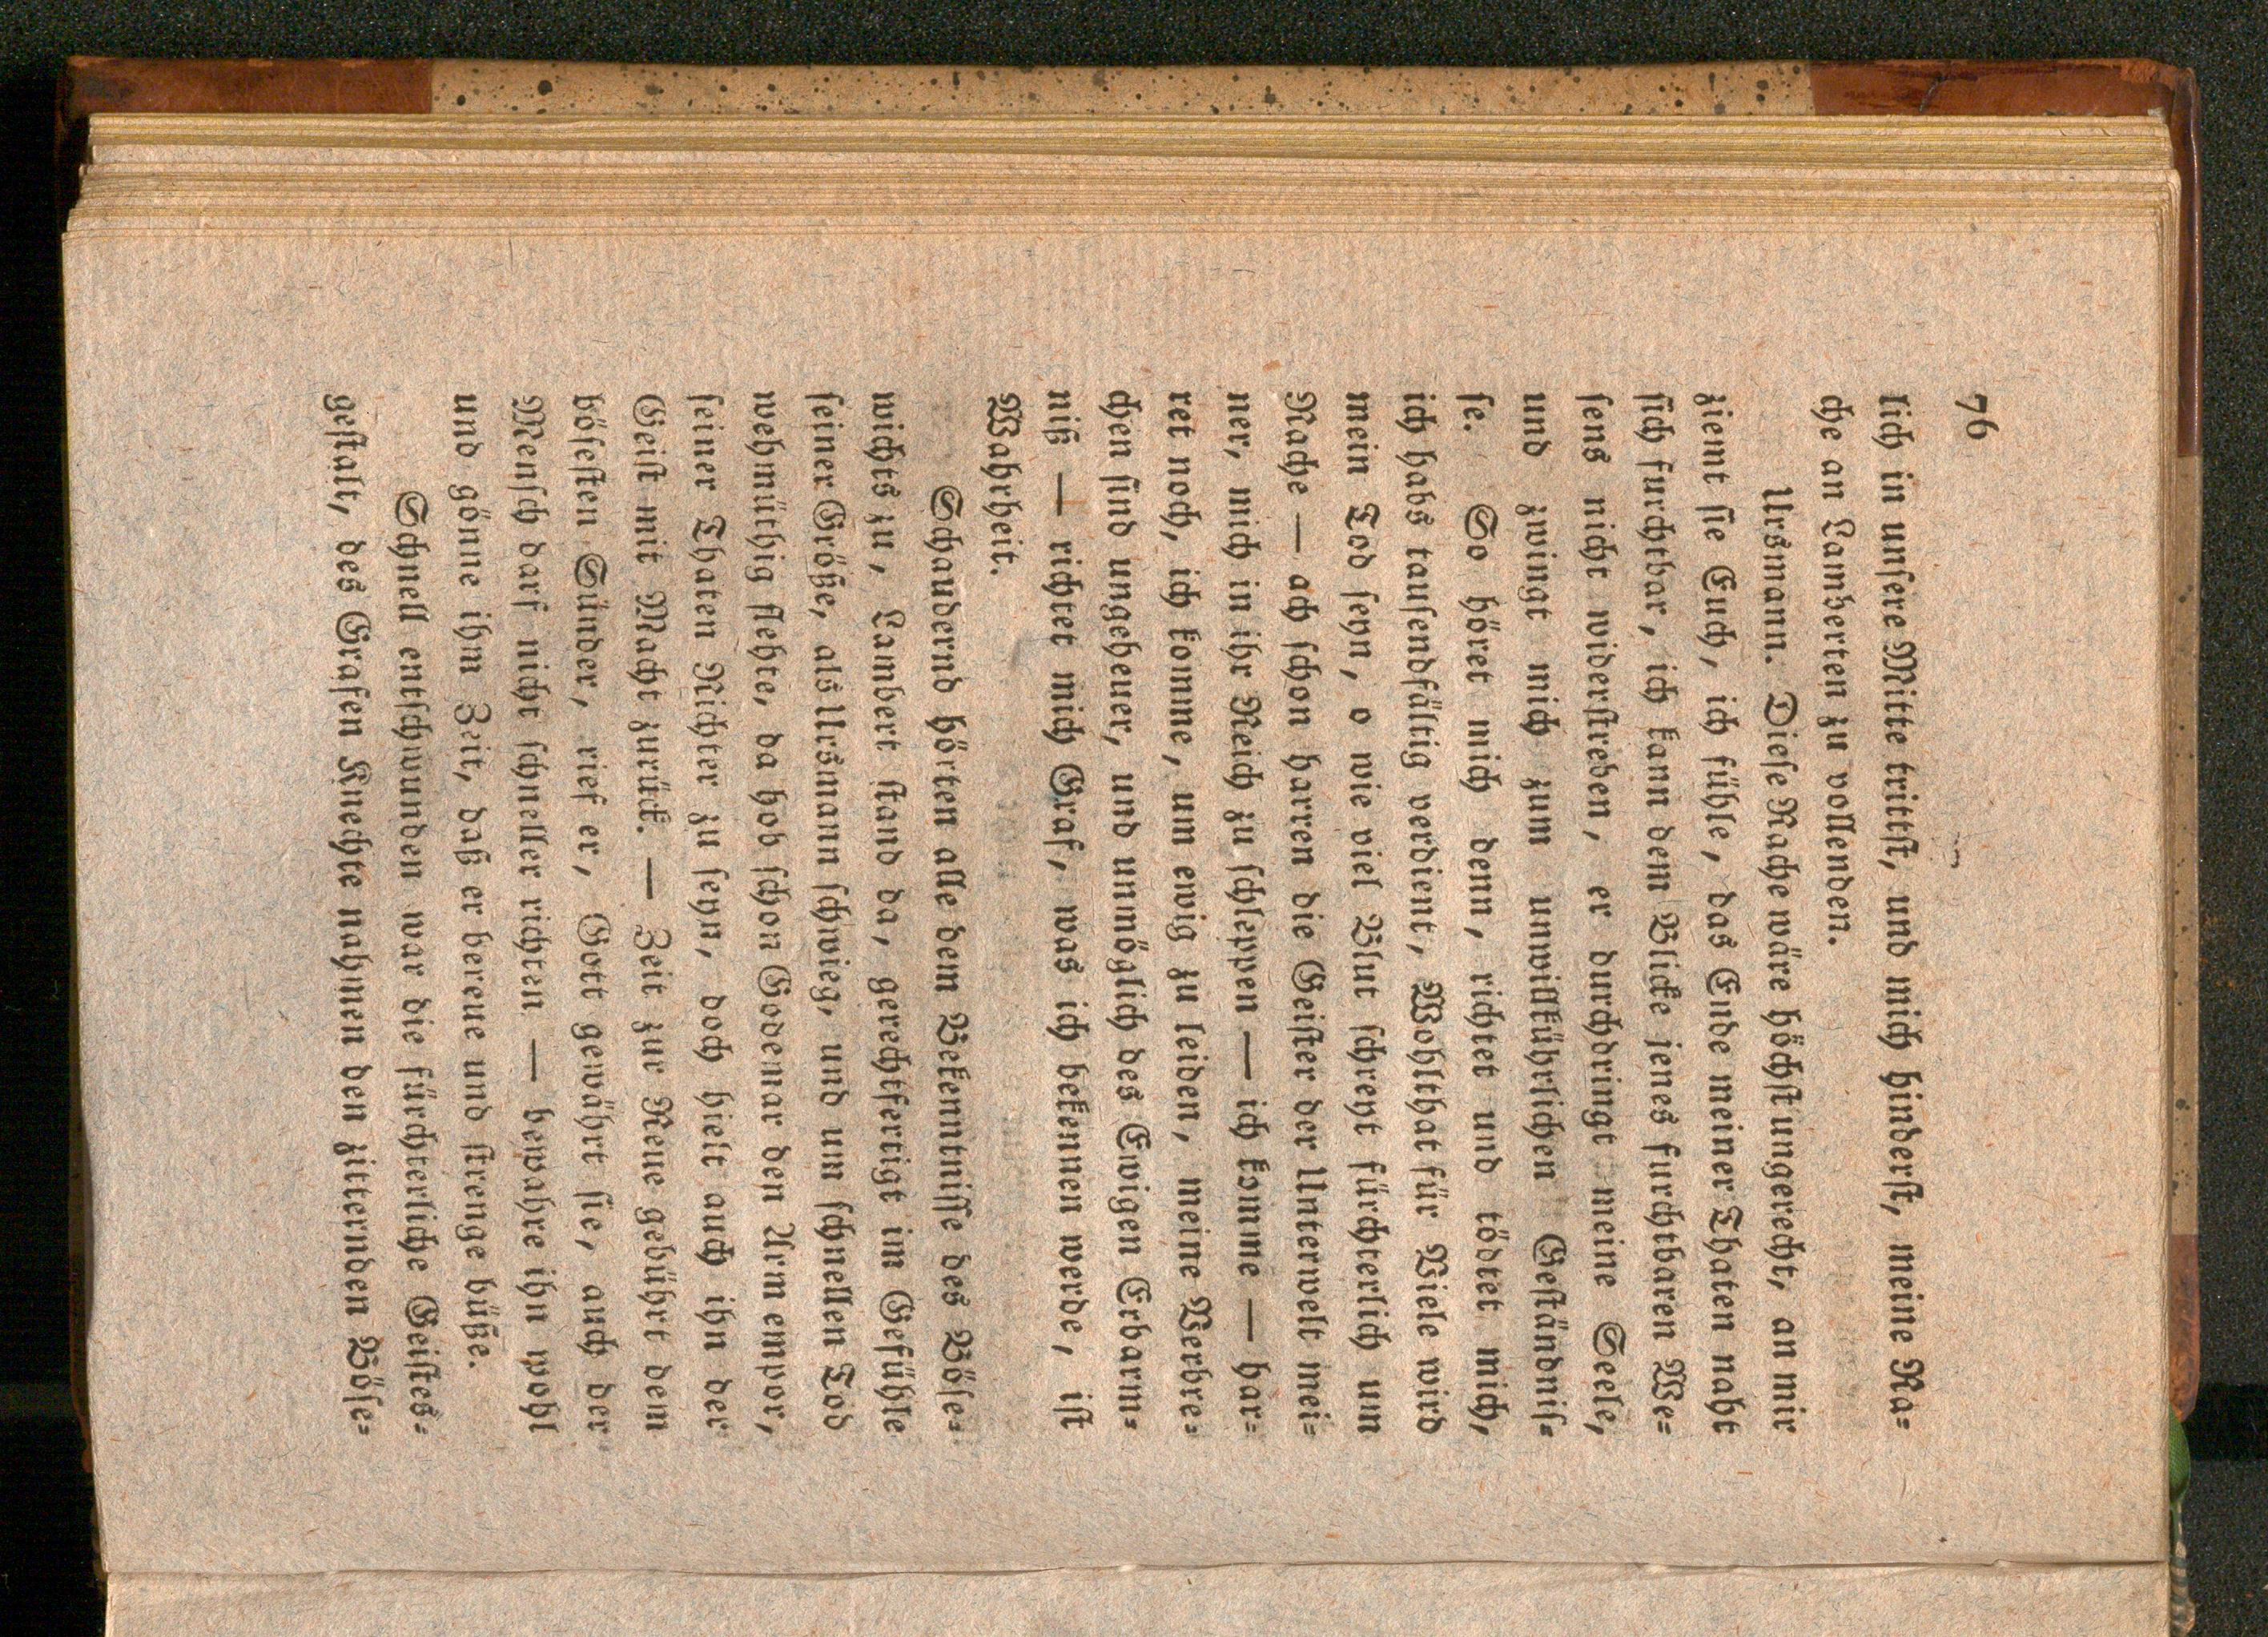 76
lich in unsere Mitte trittst, und mich hinderst, meine Ra⸗
che an Lamberten zu vollenden.
Ursmann. Diese Rache wäre höchst ungerecht, an mir
ziemt sie Euch, ich fühle, das Ende meiner Thaten naht
sich furchtbar, ich kann dem Blicke jenes furchtbaren We⸗
sens nicht widerstreben, er durchdringt meine Seele,
und zwingt mich zum unwillkührlichen Geständnis⸗
se. So höret mich denn, richtet und tödtet mich,
ich habs tausendfältig verdient, Wohlthat für Viele wird
mein Tod seyn, o wie viel Blut schreyt fürchterlich um
Rache — ach schon harren die Geister der Unterwelt mei⸗
ner, mich in ihr Reich zu schleppen — ich komme — har⸗
ret noch, ich komme, um ewig zu leiden, meine Verbre⸗
chen sind ungeheuer, und unmöglich des Ewigen Erbarm⸗
niß — richtet mich Graf, was ich bekennen werde, ist
Wahrheit.
Schaudernd hörten alle dem Bekenntnisse des Böse⸗
wichts zu, Lambert stand da, gerechtfertigt im Gefühle
seiner Größe, als Ursmann schwieg, und um schnellen Tod
wehmüthig flehte, da hob schon Godemar den Arm empor,
seiner Thaten Richter zu seyn, doch hielt auch ihn der
Geist mit Macht zurück. — Zeit zur Reue gebührt dem
bösesten Sünder, rief er, Gott gewährt sie, auch der
Mensch darf nicht schneller richten — bewahre ihn wohl
und gönne ihm Zeit, daß er bereue und strenge büße.
Schnell entschwunden war die fürchterliche Geistes⸗
gestalt, des Grafen Knechte nahmen den zitternden Böse⸗